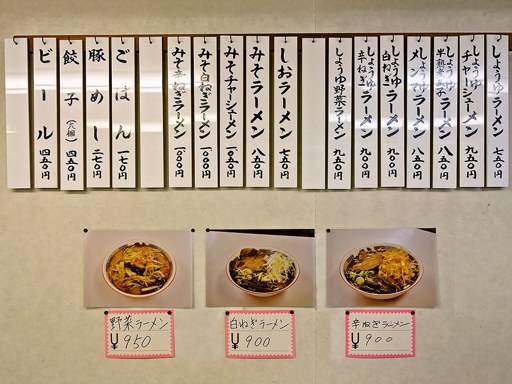 しょうゆラーメン 七五〇円
しょうゆチャーシューメン 九五〇円
しょうゆ半熟玉子ラーメン 八五〇円
しょうゆメンマラーメン 八五〇円
しょうゆ白ねぎラーメン 九〇〇円
しょうゆ辛ねぎラーメン 九〇〇円
しょうゆ野菜ラーメン 九五〇円
しおラーメン 七五〇円
みそラーメン 八五〇円
みそチャーシューメン 一〇五〇円
みそ白ねぎラーメン 一〇〇〇円
みそ辛ねぎラーメン 一〇〇〇円
ごはん 一七〇円
豚めし 二七〇円
餃子(六個) 四五〇円
ビール 四五〇円
野菜ラーメン
¥950
白ねぎラーメン
¥900
辛ねぎラーメン
¥900